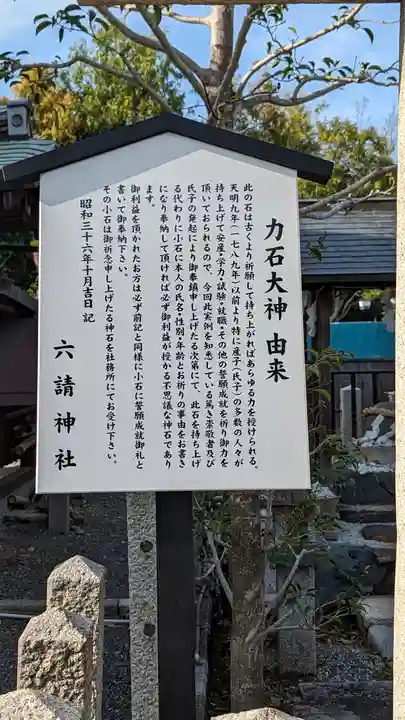 力石大神 由来
此の石は古くより祈願して持ち上がればあらゆる力を授けられる。
天明九年(一七八九年)以前より特に産子(氏子)の多数の人々が
持ち上げて安産・学力・試験・就職・その他の誓願成就を祈り御力を
頂いておられるので、今回此実例を知悉している篤き崇敬者及び
氏子の発起により御奉鎮申し上げたる次第にて、此石を持ち上げ
る代わりに小石に本人の氏名・性別・年齢とお祈りの事由をお書き
になり奉納して頂ければ必ず御利益が授かる不思議な神石であり
ます。
御利益を頂かれたお方は必ず前記と同様に小石に誓願成就御礼と
書いて御奉納下さい。
その小石は御祈念申し上げたる神石を社務所にてお受け下さい。
昭和三十六年十月吉日記
六請神社